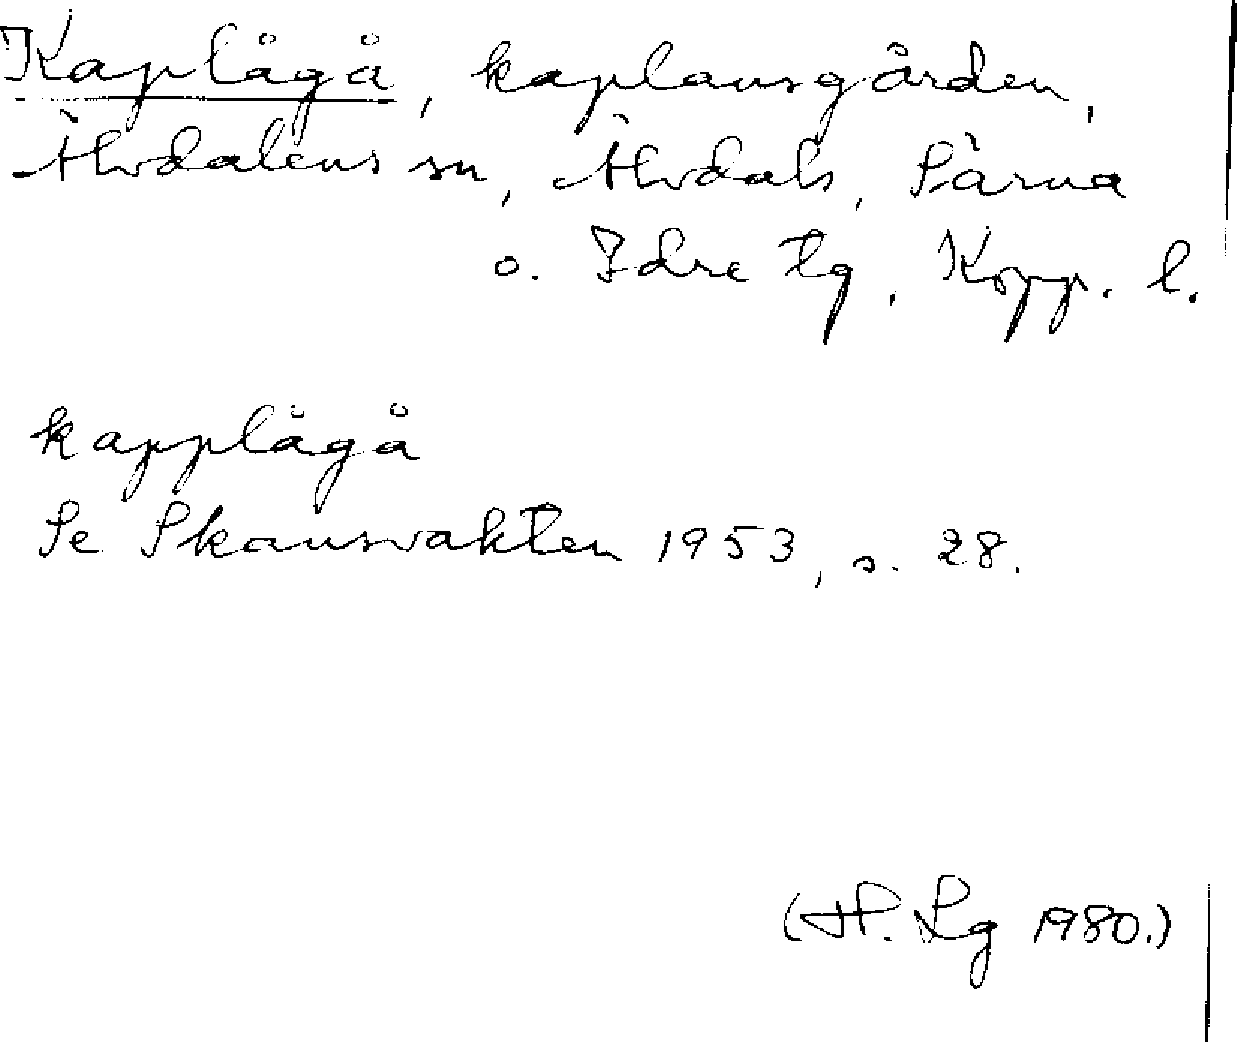 Kaplågå, kaplansgården,
Älvdalens sn, Älvdals, Särna
o. Idre tg, Kopp. l.
kapplågå
Se Skansvakten 1953, s. 28.
(H. Lg 1980.)